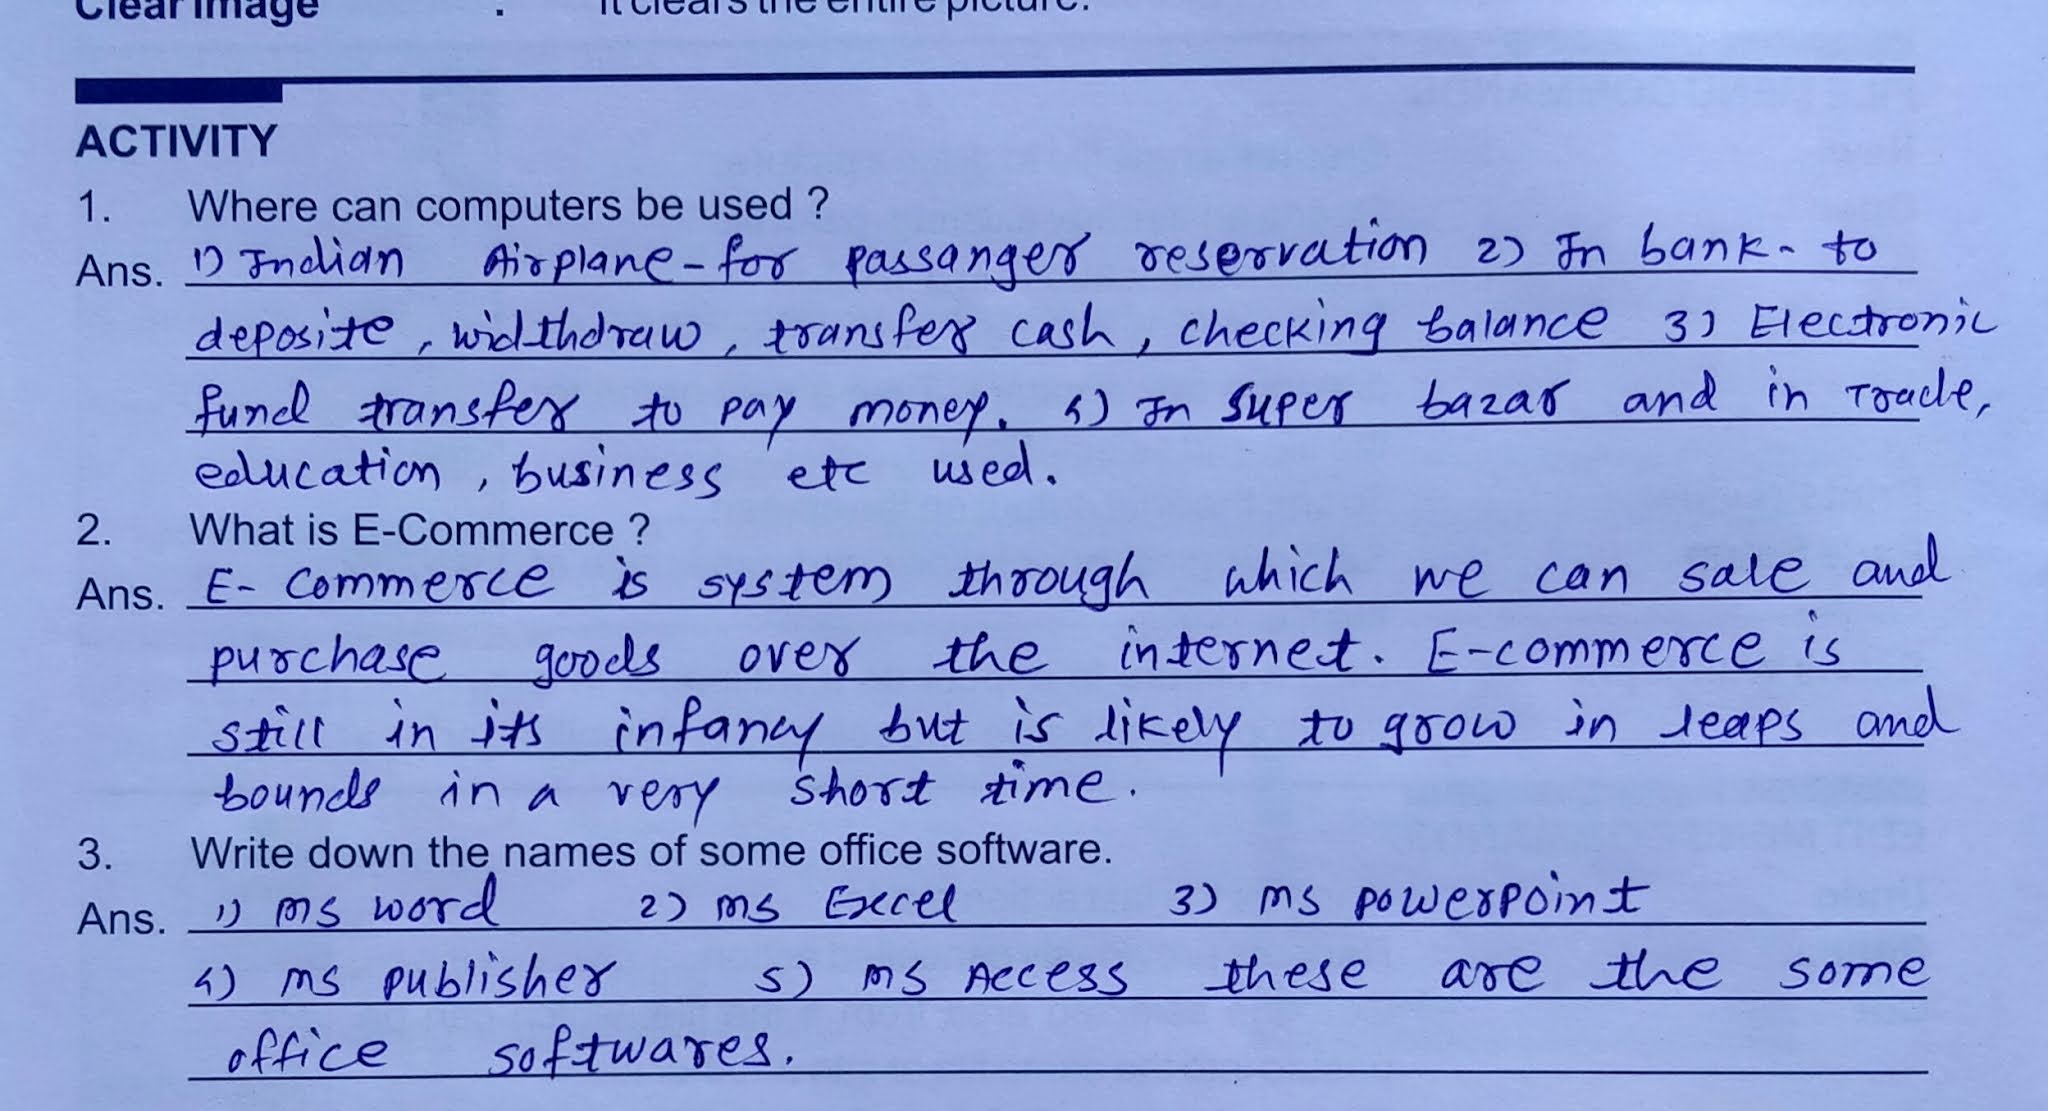 Clear Image : It clears the entire picture.
ACTIVITY
1. Where can computers be used ?
Ans. 1) Indian Airplane - for passanger reservation 2) In bank - to
deposite, widthdraw, transfer cash, checking balance 3) Electronic
fund transfer to pay money. 4) In Super bazar and in Trade,
education, business etc used.
2. What is E-Commerce ?
Ans. E- Commerce is system through which we can sale and
purchase goods over the internet. E-commerce is
still in its infancy but is likely to grow in leaps and
bounds in a very short time.
3. Write down the names of some office software.
Ans. 1) MS word 2) MS Excel 3) MS powerpoint
4) MS publisher 5) MS Access these are the some
office softwares.